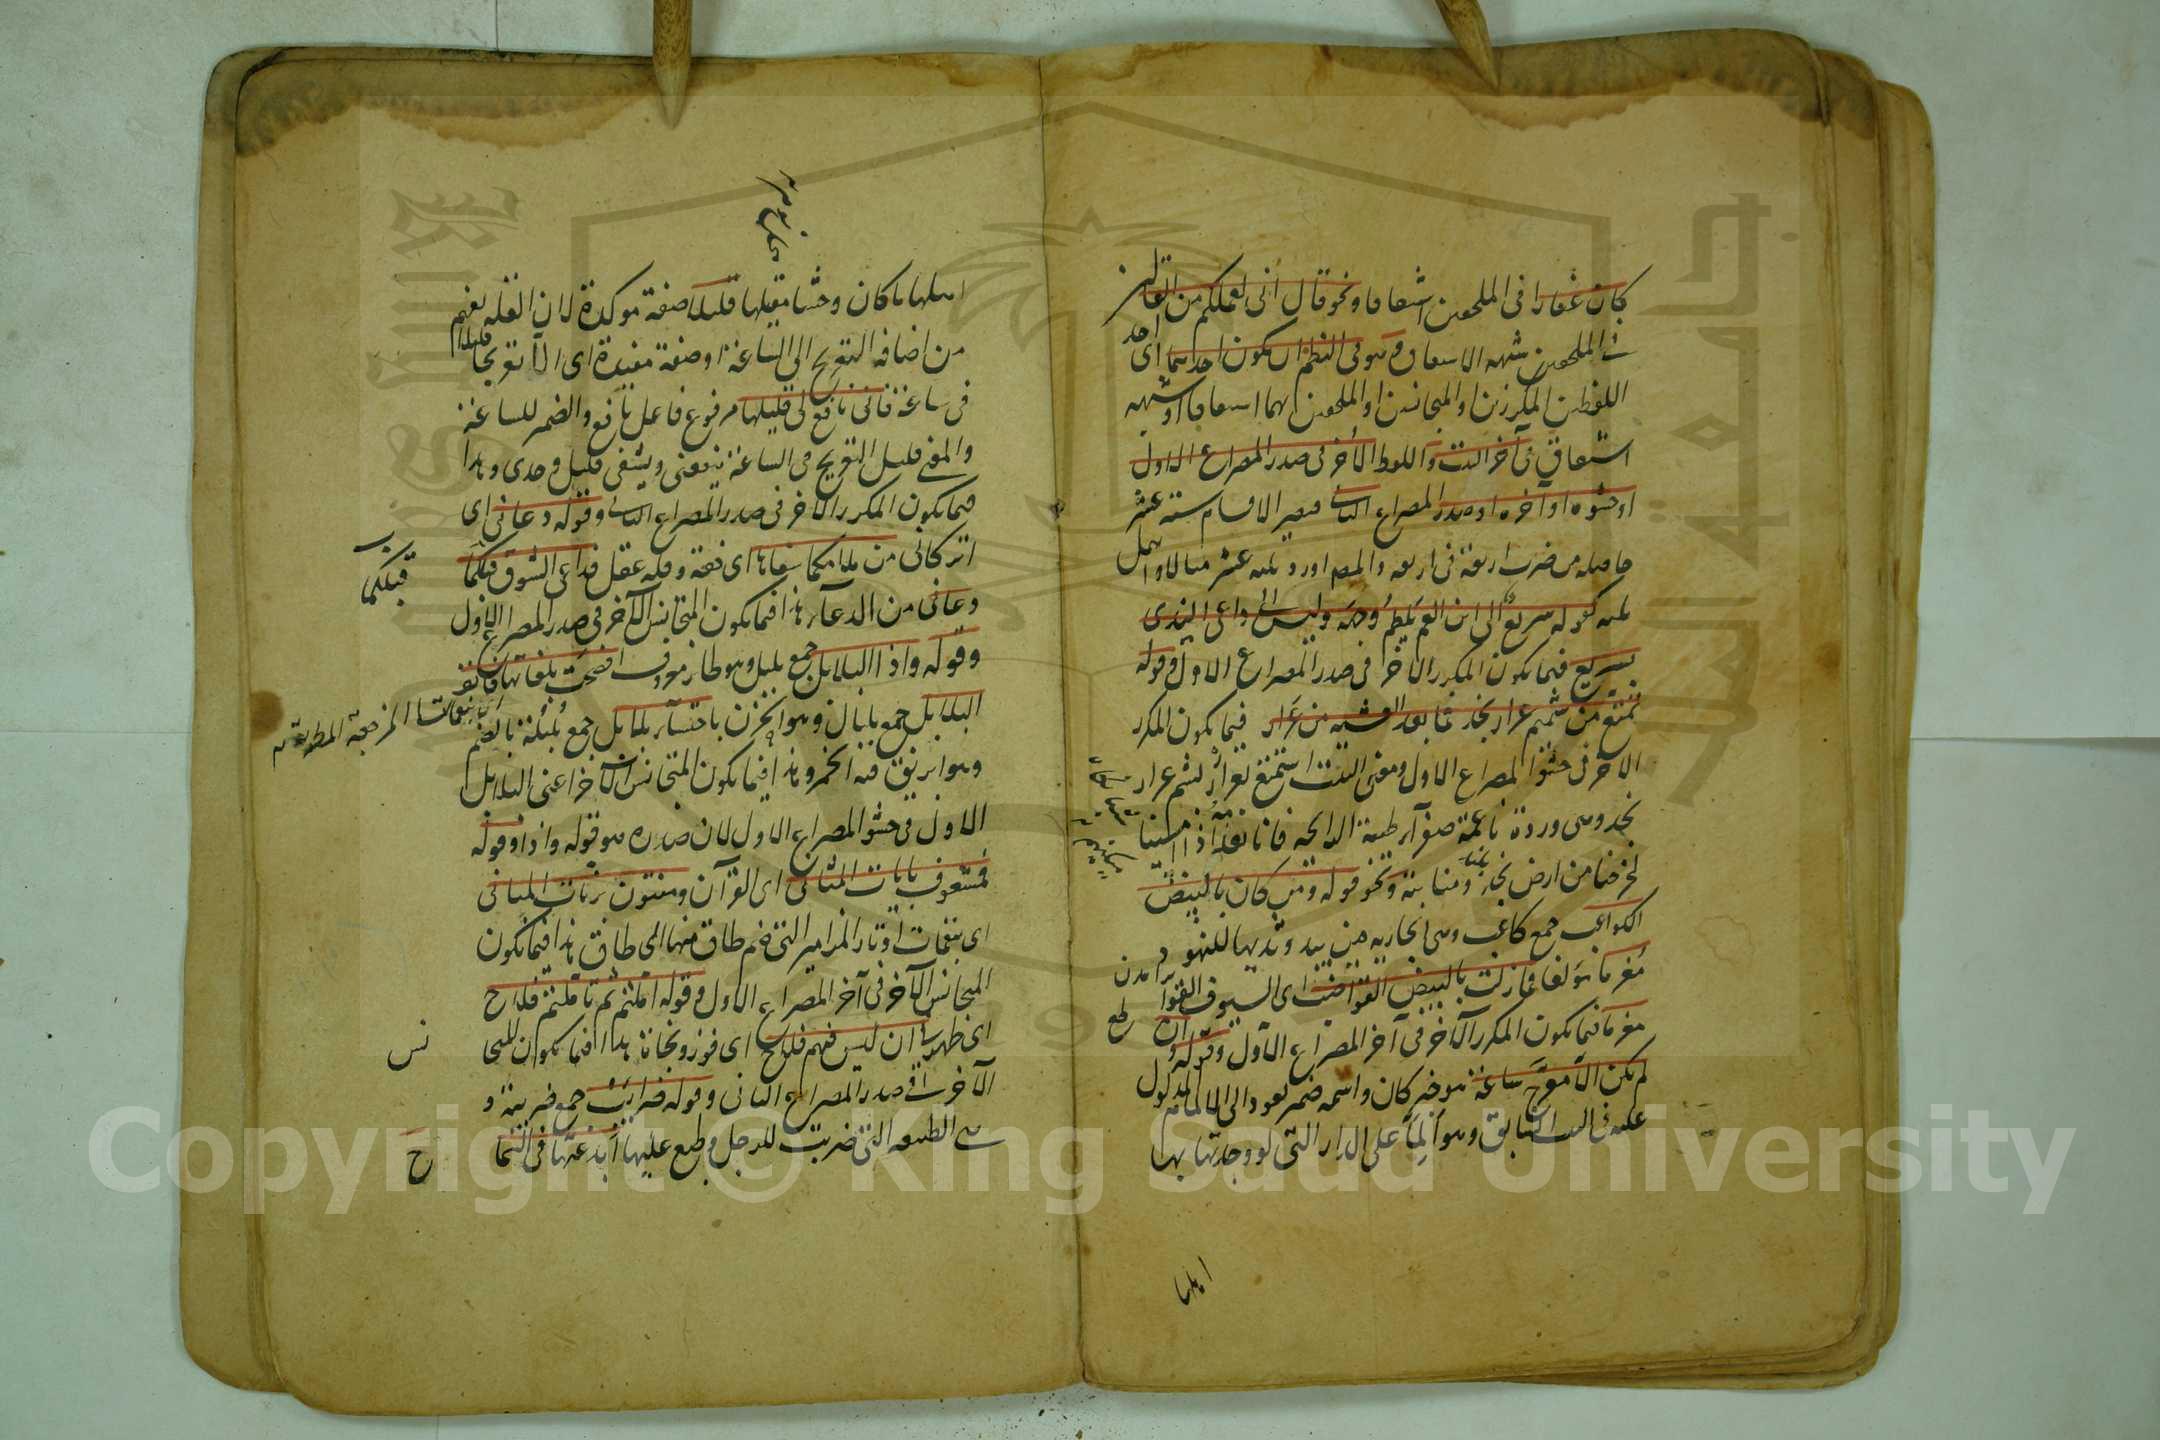 كان غفارا فى الملحقين اشتقاقا ونحو قال انى لعملكم من القالين
فى الملحقين شبه الاشتقاق وهو فى النظم ان يكون احدهما اى احد
اللفظين المكررين او المتجانسين او الملحقين بهما اشتقاقا او شبه
اشتقاق فى آخر البيت واللفظ الآخر فى صدر المصراع الاول
او حشوه او آخره او صدر المصراع الثانى فيصير الاقسام ستة عشر
حاصلة من ضرب اربعة فى اربعة والمص اورد ثلثة عشر مثالا واهمل
ثلثة كقوله سريع الى ابن العم يلطم وجهه وليس الى داعى الندى
بسريع فيما يكون المكرر الآخر فى صدر المصراع الاول وقوله
تمتع من شميم عرار نجد فما بعد العشية من عرار فيما يكون المكرر
الآخر فى حشو المصراع الاول ومعنى البيت استمتع بشم عرار
نجد وهى وردة ناعمة صفراء طيبة الرائحة فانا نعدمه اذا امسينا
لخروجنا من ارض نجد ومنابته ونحو قوله ومن كان بالبيض
الكواعب جمع كاعب وهى الجارية حين يبدو ثديها للنهود
مغرما مولعا فما زلت بالبيض القواضب اى السيوف القواطع
مغرما فيما يكون المكرر الآخر فى آخر المصراع الاول وقوله وان
لم يكن الا معرج ساعة هو خبر كان واسمه ضمير يعود الى الالمام المدلول
عليه فى البيت السابق وهو الما على الدار التى لو وجدتها بها
اهلها
اهلها ما كان وحشا مقيلها قليلا صفة موكدة لان القلة يفهم
من اضافة التعريج الى الساعة او صفة مقيدة اى الا تعريجا قليلا
فى ساعة فانى نافع لى قليلها مرفوع فاعل نافع والضمير للساعة
والمعنى قليل التعريج فى الساعة ينفعنى ويشفى غليل وجدى وهذا
فيما يكون المكرر الآخر فى صدر المصراع الثانى وقوله دعانى اى
اتركانى من ملامكما سفاها اى خفة وقلة عقل فداعى الشوق قبلكما
دعانى من الدعاء هذا فيما يكون المتجانس الآخر فى صدر المصراع الاول
وقوله واذا البلابل جمع بلبل وهو طائر معروف افصحت بلغاتها فانف
البلابل جمع بلبال وهو الحزن باحتساء بلابل جمع بلبلة بالضم
وهو ابريق فيه الخمر وهذا فيما يكون المتجانس الآخر اعنى البلابل
الاول فى حشو المصراع الاول لان صدره هو قوله واذا وقوله
فمشغوف بآيات المثانى اى القرآن ومفتون برنات المثانى
اى بنغمات اوتار المزامير التى ضم طاق منها الى طاق هذا فيما يكون
المتجانس الآخر فى آخر المصراع الاول وقوله املتهم ثم تأملتهم فلاح
اى ظهر لى ان ليس فيهم فلاح اى فوز ونجاة هذا فيما يكون المتجا
الآخر فى صدر المصراع الثانى وقوله ضرائب جمع ضريبة و
هى الطبيعة التى ضربت للرجل وطبع عليها ابدعتها فى السما
قبلكما
نس
ح